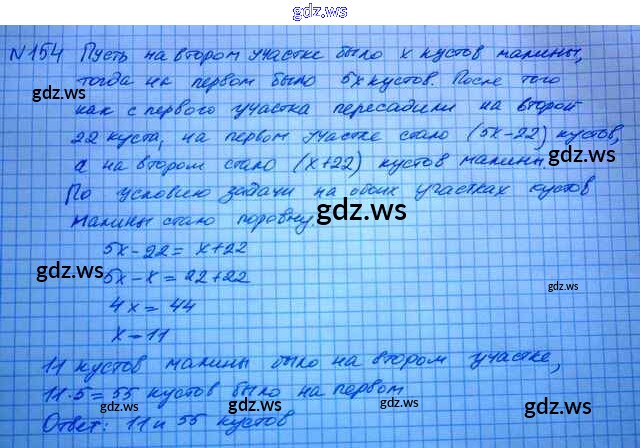 gdz.ws
N154 Пусть на втором участке было x кустов малины,
тогда на первом было 5x кустов. После того
как с первого участка пересадили на второй
22 куста, на первом участке стало (5x-22) кустов,
а на втором стало (x+22) кустов малины
По условию задачи на обоих участках кустов
малины стало поровну.
5x-22= x+22
5x-x=22+22
4x=44
x=11
11 кустов малины было на втором участке,
11·5=55 кустов было на первом
Ответ: 11 и 55 кустов
gdz.ws
gdz.ws
gdz.ws
gdz.ws
gdz.ws
gdz.ws
gdz.ws
gdz.ws